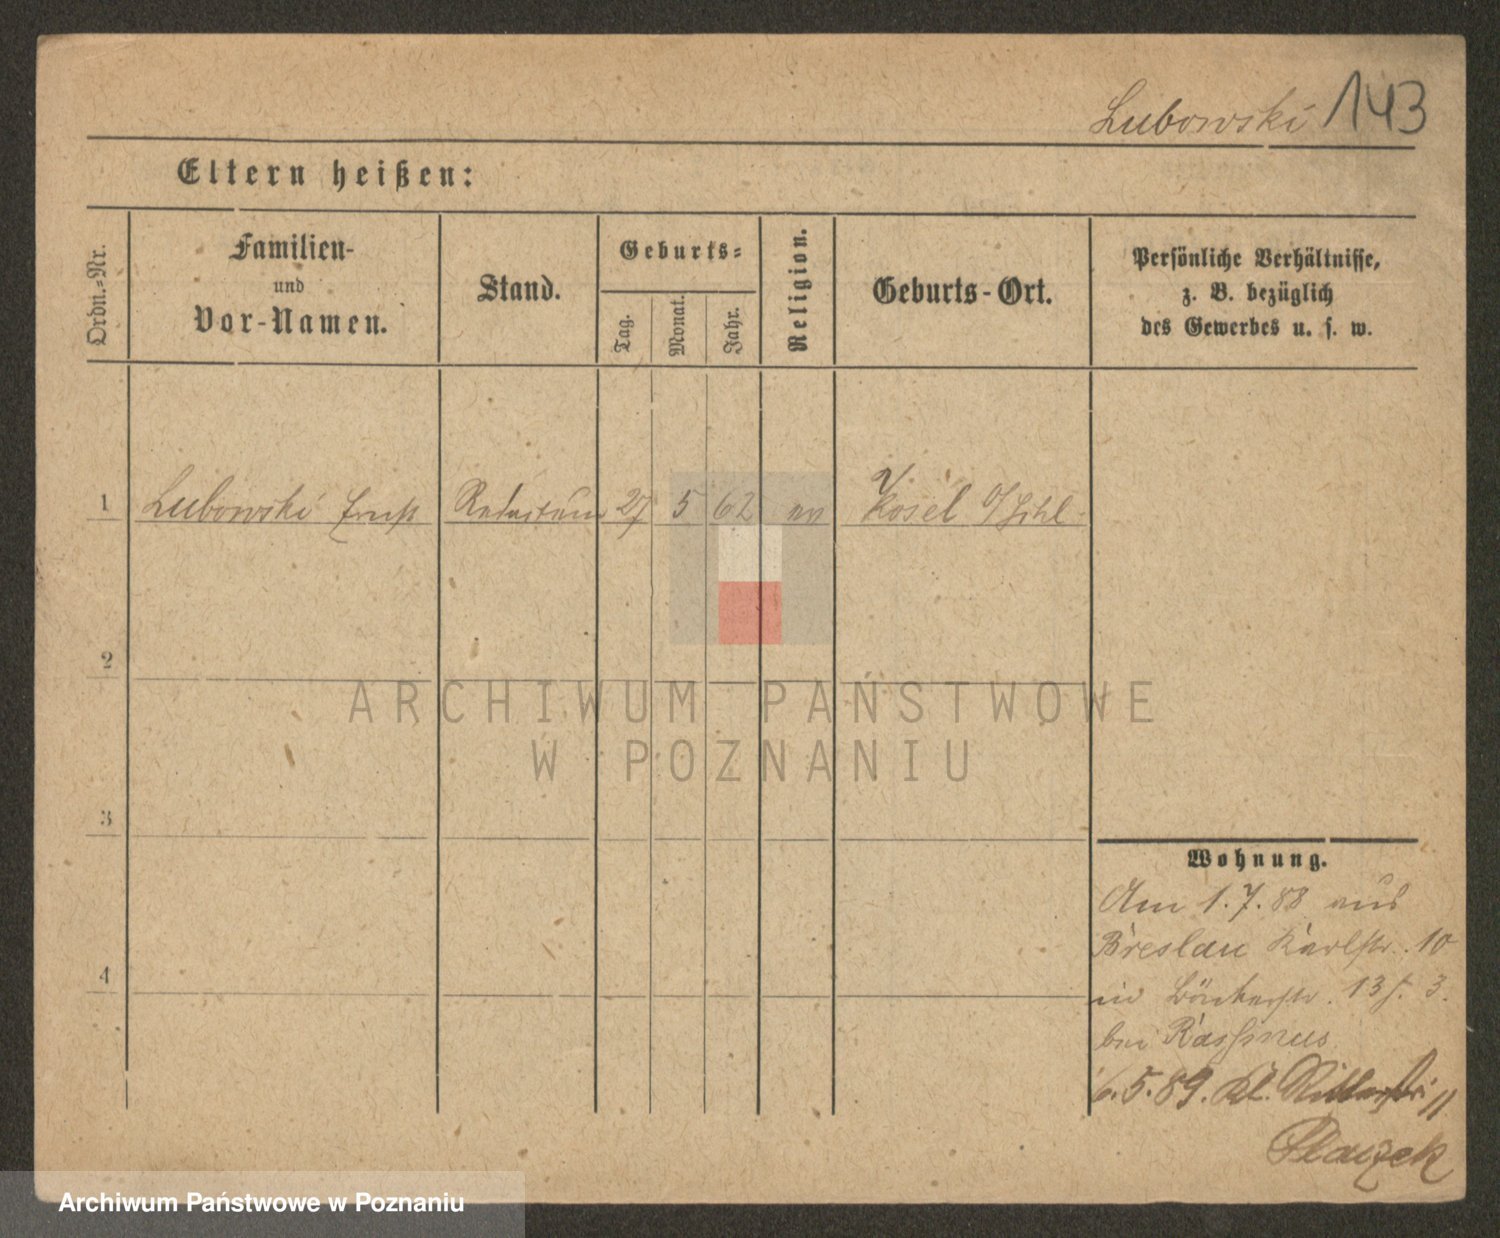 Lubowski 143
Eltern heißen:
Ordn.-Nr.
Familien-
und
Vor-Namen.
Stand.
Geburts-
Tag.
Monat.
Jahr.
Religion.
Geburts-Ort.
Persönliche Verhältnisse,
z. B. bezüglich
des Gewerbes u. s. w.
1 Lubowski Ernst 27 5 62 ev Kosel O/Schl
2
3
4
Wohnung.
Am 1.7.88 aus
Breslau Karlstr. 10
in 13 3.
bei Kassinus
6.5.89. Kl. Ritterstr. 11
Placzek
ARCHIWUM PAŃSTWOWE
W POZNANIU
Archiwum Państwowe w Poznaniu